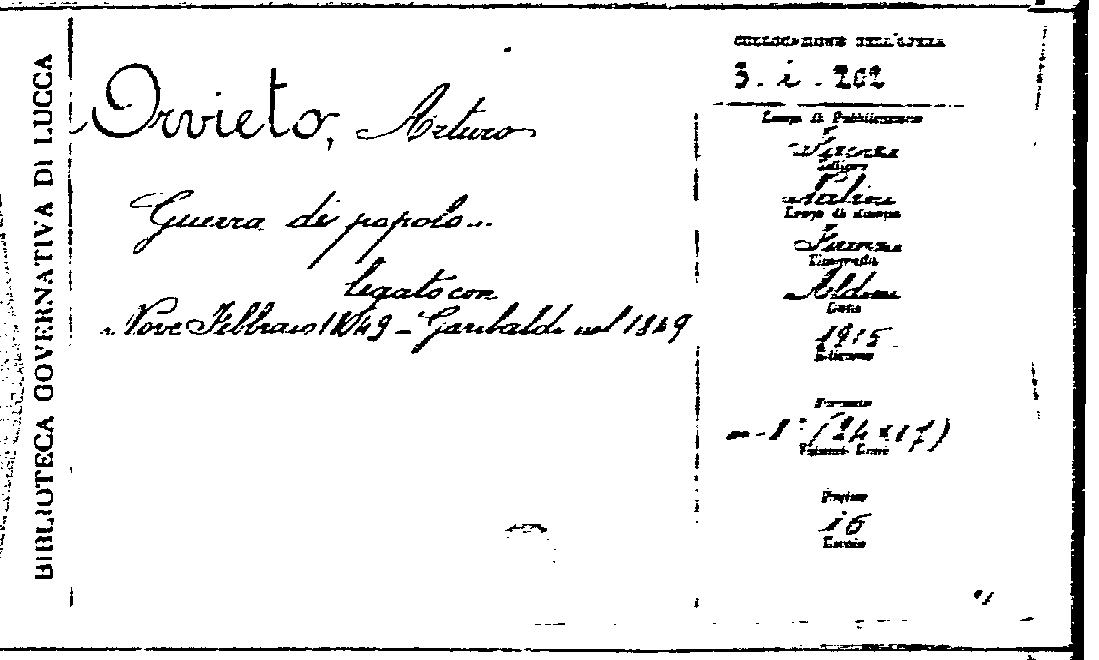 BIBLIOTECA GOVERNATIVA DI LUCCA
Orvieto, Arturo
Guerra di popolo...
legato con
Nove Febbraio 1849 - Garibaldi nel 1849
COLLOCAZIONE DELL'OPERA
3. i. 202
Luogo di Pubblicazione
Firenze
Editore
Luogo di stampa
Firenze
Tipografia
Data
1915
Edizione
Formato
8° (24x17)
Pagine
16